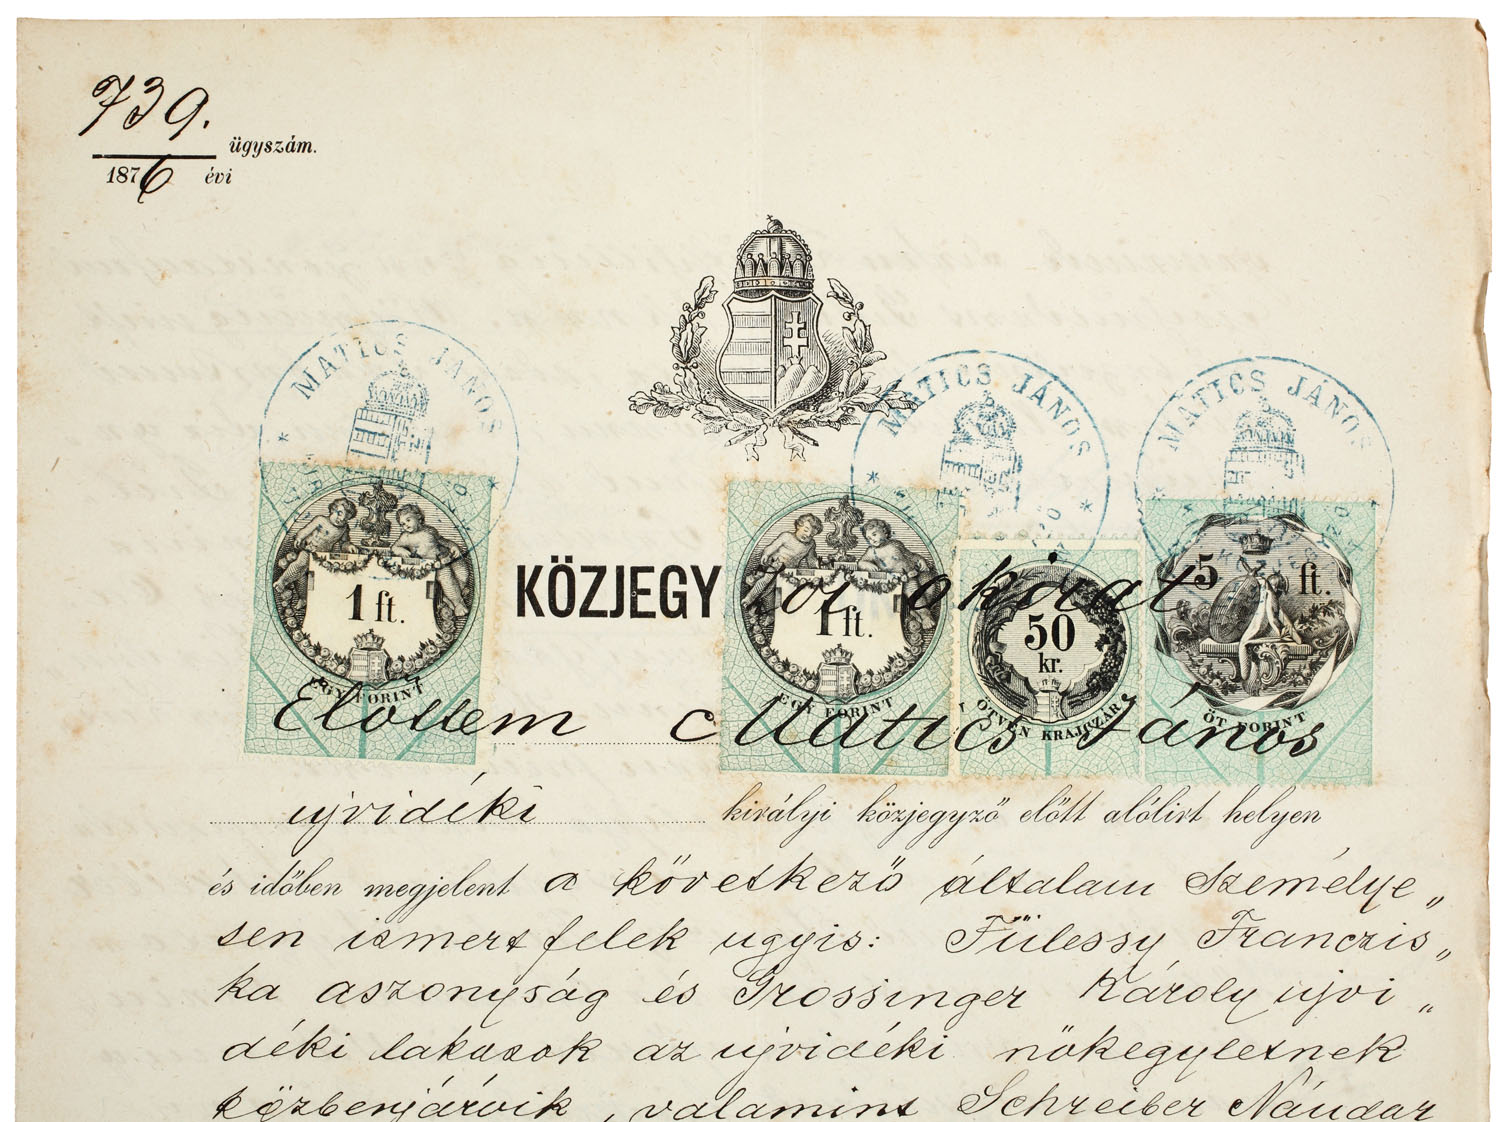 739.
ügyszám.
1876 évi
MATICS JÁNOS
MATICS JÁNOS
MATICS JÁNOS
1 ft.
EGY FORINT
1 ft.
EGY FORINT
50 kr.
ÖTVEN KRAJCZÁR
5 ft.
ÖT FORINT
KÖZJEGYzői okirat
Előttem Matics János
ujvidéki királyi közjegyző előtt alólirt helyen
és időben megjelent a következő általam személye„
sen ismert felek ugyis: Fülessy Franczis„
ka aszonyság és Grossinger Károly ujvi„
déki lakosok az ujvidéki nőkegyletnek
közbenjárvik, valamint Schreiber Nándar